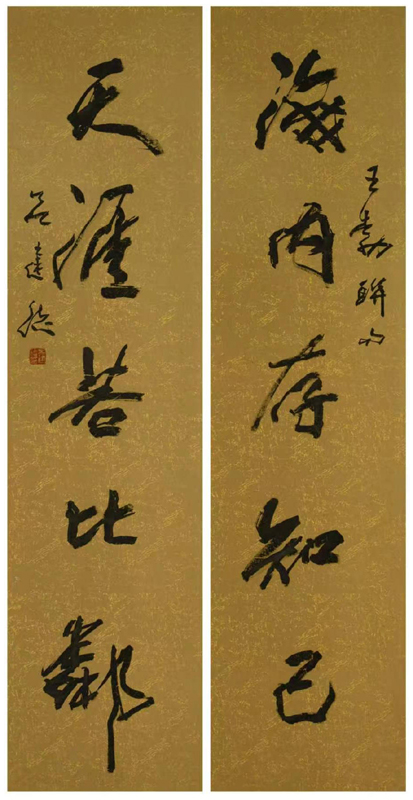 海内存知己
王勃联句
天涯若比邻
吕建德